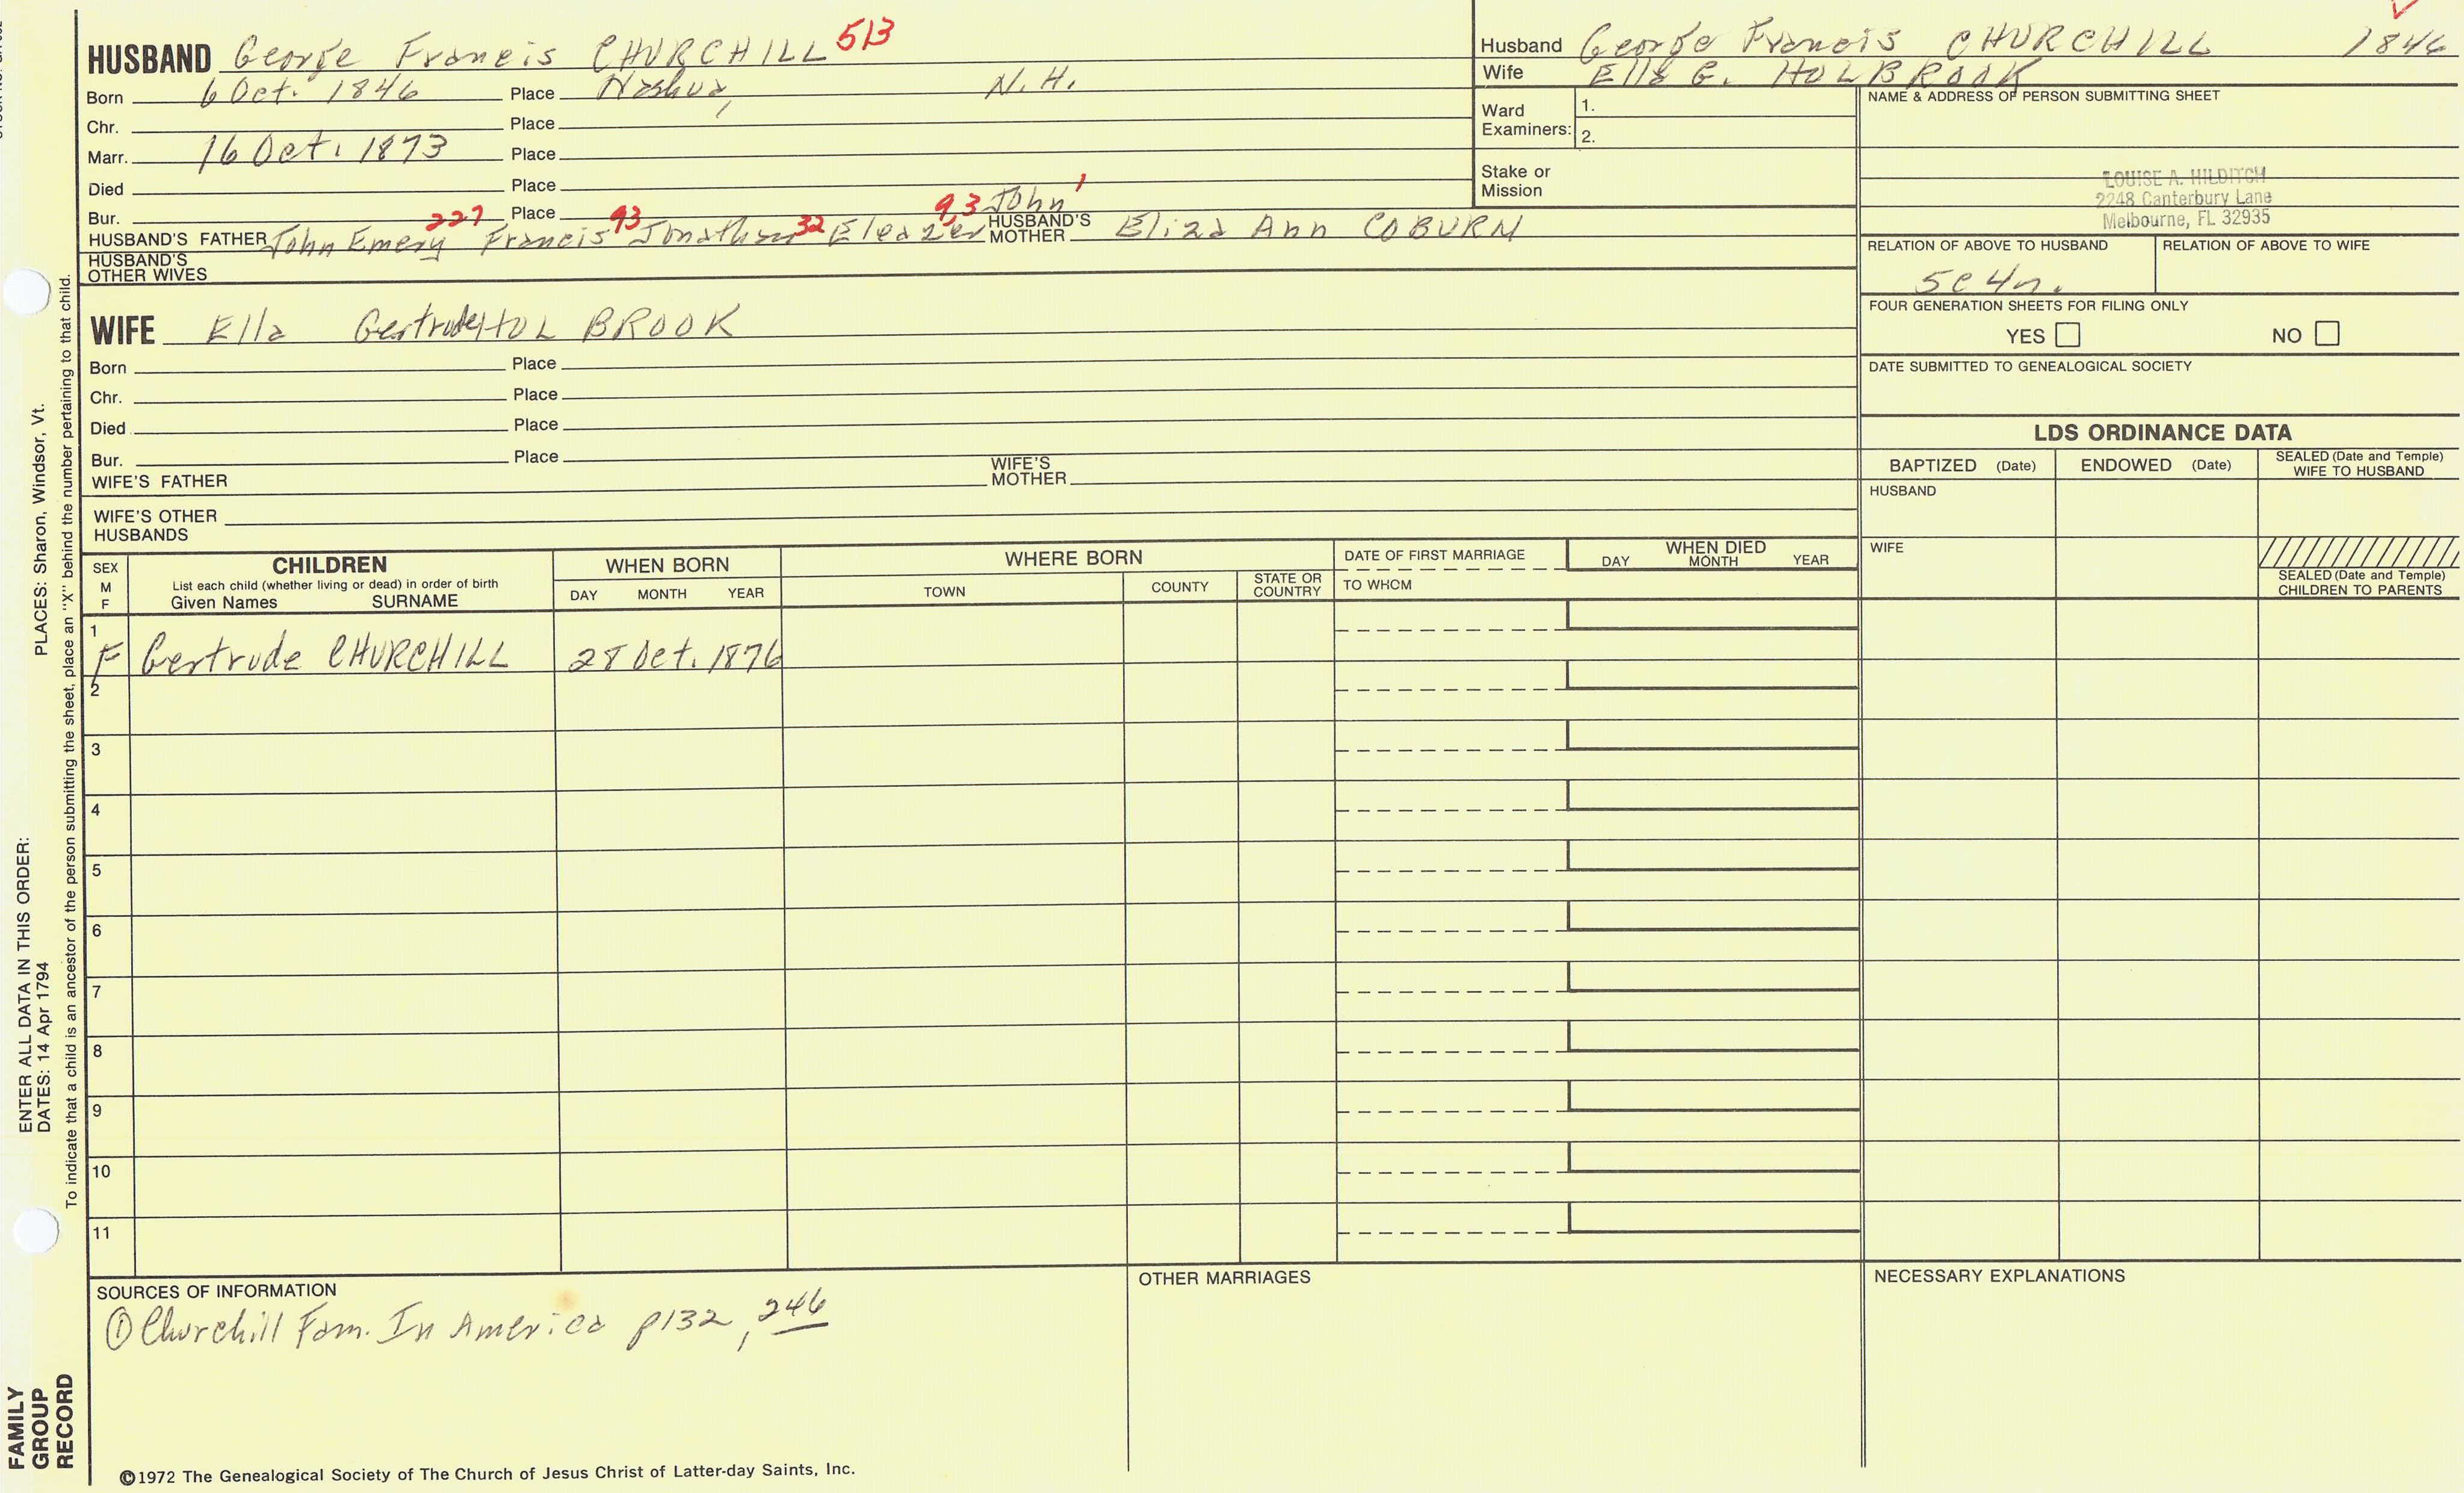 HUSBAND George Francis CHURCHILL 513
Born 6 Oct. 1846 Place Nashua, N.H.
Chr. Place
Marr. 16 Oct. 1873 Place
Died Place
Bur. Place
227 93 32 9,3 John 1
HUSBAND'S FATHER John Emery Francis Jonathan Eleazer HUSBAND'S MOTHER Eliza Ann COBURN
HUSBAND'S
OTHER WIVES
Husband George Francis CHURCHILL 1846
Wife Ella G. HOLBROOK
Ward
Examiners:
1.
2.
Stake or
Mission
NAME & ADDRESS OF PERSON SUBMITTING SHEET
LOUISE A. HILDITCH
2248 Canterbury Lane
Melbourne, FL 32935
RELATION OF ABOVE TO HUSBAND RELATION OF ABOVE TO WIFE
5c4r.
FOUR GENERATION SHEETS FOR FILING ONLY
YES NO
DATE SUBMITTED TO GENEALOGICAL SOCIETY
WIFE Ella Gertrude HOLBROOK
Born Place
Chr. Place
Died Place
Bur. Place
WIFE'S FATHER WIFE'S MOTHER
WIFE'S OTHER
HUSBANDS
LDS ORDINANCE DATA
BAPTIZED (Date) ENDOWED (Date) SEALED (Date and Temple)
WIFE TO HUSBAND
HUSBAND
WIFE
SEALED (Date and Temple)
CHILDREN TO PARENTS
SEX
M
F
CHILDREN
List each child (whether living or dead) in order of birth
Given Names SURNAME
WHEN BORN
DAY MONTH YEAR
WHERE BORN
TOWN COUNTY STATE OR COUNTRY
DATE OF FIRST MARRIAGE
TO WHOM
WHEN DIED
DAY MONTH YEAR
1
F Gertrude CHURCHILL 28 Oct. 1876
2
3
4
5
6
7
8
9
10
11
SOURCES OF INFORMATION
① Churchill Fam. In America p132, 246
OTHER MARRIAGES
NECESSARY EXPLANATIONS
©1972 The Genealogical Society of The Church of Jesus Christ of Latter-day Saints, Inc.
ENTER ALL DATA IN THIS ORDER:
DATES: 14 Apr 1794 PLACES: Sharon, Windsor, Vt.
To indicate that a child is an ancestor of the person submitting the sheet, place an "X" behind the number pertaining to that child.
FAMILY
GROUP
RECORD